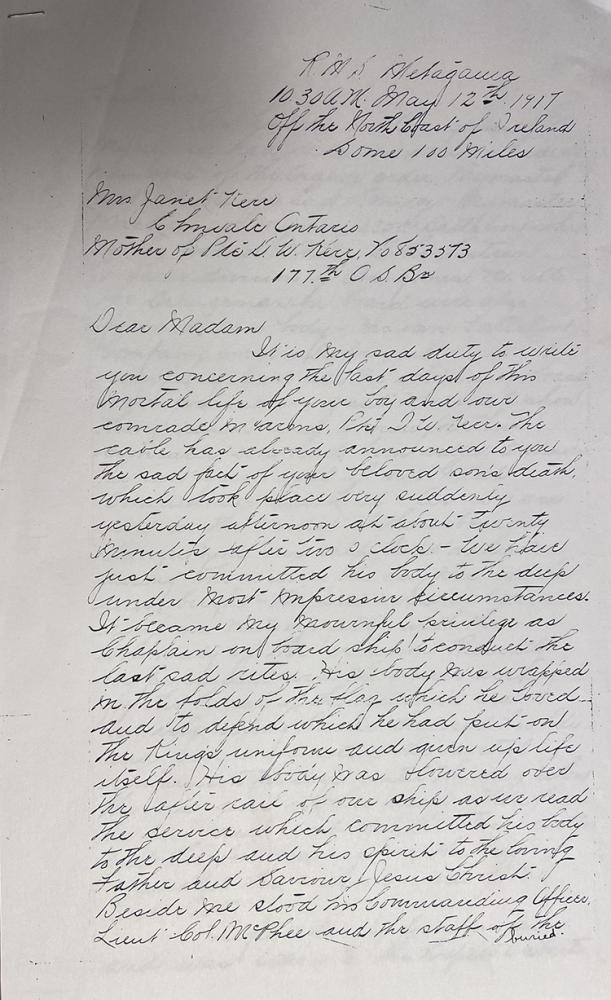 R.M.S. Metagama
10.30 A.M. May 12th 1917
Off the North Coast of Ireland
Some 100 Miles
Mrs Janet Kerr
Elmvale Ontario
Mother of Pte D. W. Kerr, No 853573
177th O.S. Bn
Dear Madam
It is my sad duty to write
you concerning the last days of this
mortal life of your boy and our
comrade in arms, Pte D W. Kerr. The
cable has already announced to you
the sad fact of your beloved son's death,
which took place very suddenly
yesterday afternoon at about twenty
minutes after two o clock. - We have
just committed his body to the deep
under most impressive circumstances.
It became my mournful privilege as
Chaplain on board ship to conduct the
last sad rites. His body was wrapped
in the folds of the flag which he loved
and to defend which he had put on
the Kings uniform and given up life
itself. His body was lowered over
the after rail of our ship as we read
the service which committed his body
to the deep and his spirit to the loving
Father and Saviour Jesus Christ.
Beside me stood his Commanding Officer,
Lieut Col. McPhee and the staff of the
buried.